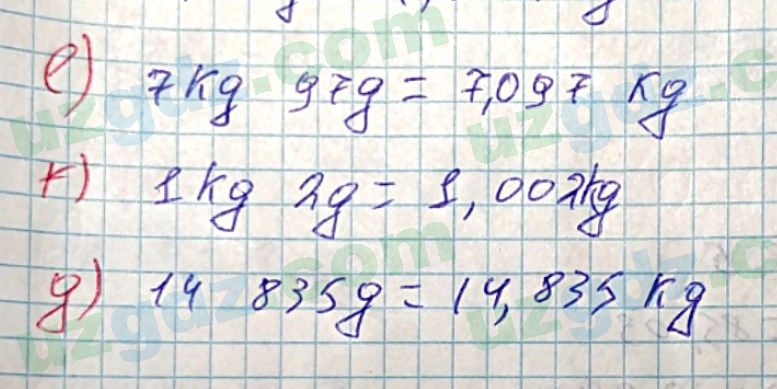 e) 7kg 97g = 7,097 kg
f) 1kg 2g = 1,002kg
g) 14 835g = 14,835 kg
uzgdz.com